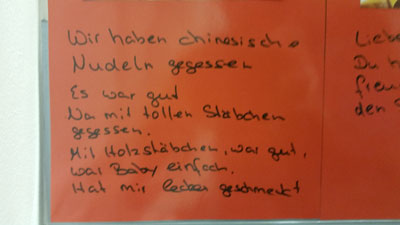 Wir haben chinesische
Nudeln gegessen
Es war gut
Na mit tollen Stäbchen
gegessen.
Mit Holzstäbchen, war gut,
war Baby einfach.
Hat mir lecker geschmeckt
Liebe
Du h
freu
den S